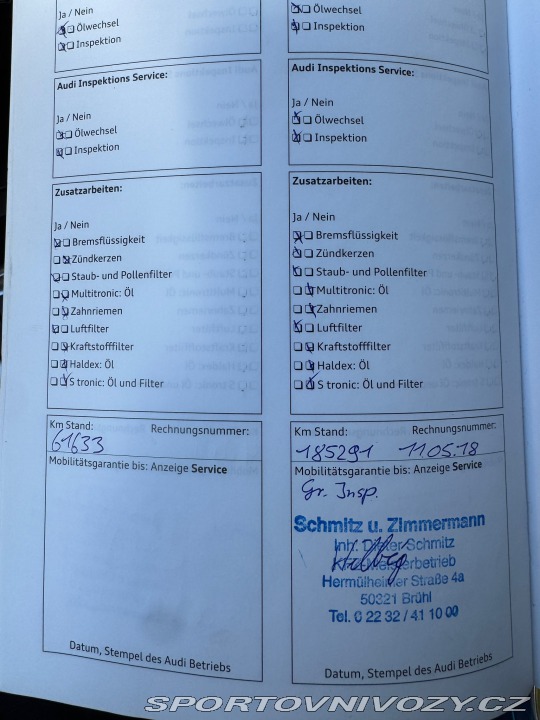 Ja / Nein
Ölwechsel
Inspektion
Audi Inspektions Service:
Ja / Nein
Ölwechsel
Inspektion
Zusatzarbeiten:
Ja / Nein
Bremsflüssigkeit
Zündkerzen
Staub- und Pollenfilter
Multitronic: Öl
Zahnriemen
Luftfilter
Kraftstofffilter
Haldex: Öl
S tronic: Öl und Filter
Km Stand: Rechnungsnummer:
61633
Mobilitätsgarantie bis: Anzeige Service
Datum, Stempel des Audi Betriebs
Ölwechsel
Inspektion
Audi Inspektions Service:
Ja / Nein
Ölwechsel
Inspektion
Zusatzarbeiten:
Ja / Nein
Bremsflüssigkeit
Zündkerzen
Staub- und Pollenfilter
Multitronic: Öl
Zahnriemen
Luftfilter
Kraftstofffilter
Haldex: Öl
S tronic: Öl und Filter
Km Stand: Rechnungsnummer:
185291 11.05.18
Mobilitätsgarantie bis: Anzeige Service
Gr. Insp.
Schmitz u. Zimmermann
Inh. Schmitz
Hermülheimer Straße 4a
50321 Brühl
Tel. 0 22 32 / 41 10 00
Datum, Stempel des Audi Betriebs
SPORTOVNIVOZY.CZ